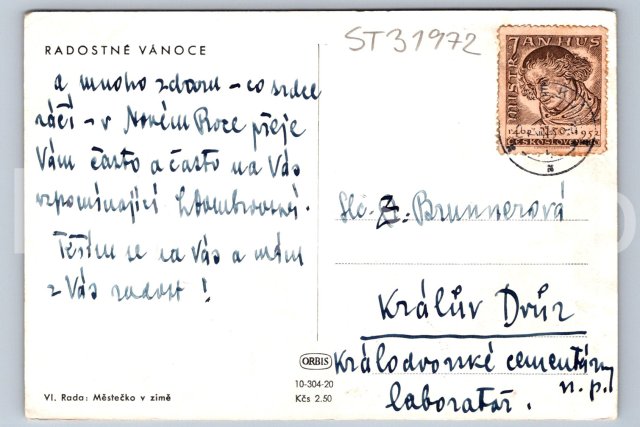 RADOSTNÉ VÁNOCE
ST 3 1972
MISTR JAN HUS
ČESKOSLOVEN
a mnoho zdaru – co srdce
ráčí – v Novém Roce přeje
Vám často a často na Vás
vzpomínající
Těším se na Vás a mám
z Vás radost !
Slč. Z. Brunnerová
Králův Dvůr
Králodvorské cementárny
n. p.
laboratoř.
ORBIS
10-304-20
Kčs 2.50
VI. Rada: Městečko v zimě